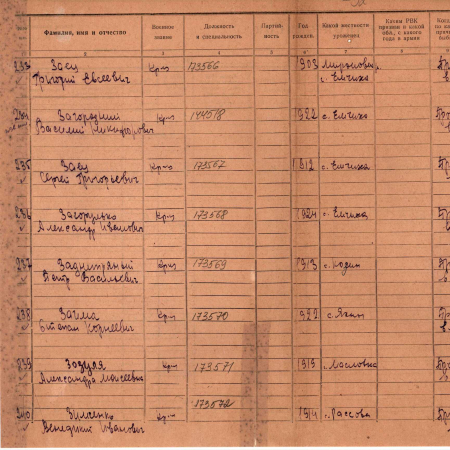 Фамилия, имя и отчество
Военное звание
Должность и специальность
Партийность
Год рожден.
Какой местности уроженец
Каким РВК призван и какой обл., с какого года в армии
2 3 4 5 6 7 8
233 Заец Григорий Евсеевич Кр-ц 173566 1903 с. Емчиха
234 Загородний Василий Никифорович Кр-ц 144518 1922 с. Емчиха
235 Заец Сергей Григорьевич Кр-ц 173567 1912 с. Емчиха
236 Загорулько Александр Иванович Кр-ц 173568 1924 с. Емчиха
237 Заднипряный Петр Васильевич Кр-ц 173569 1913
238 Заима Степан Корнеевич Кр-ц 173570 1922
239 Зозуля Александра Моисеевич Кр-ц 173571 1919 с. Масловка
240 Зинченко Венедикт Иванович Кр-ц 173572 1914 с. Россава